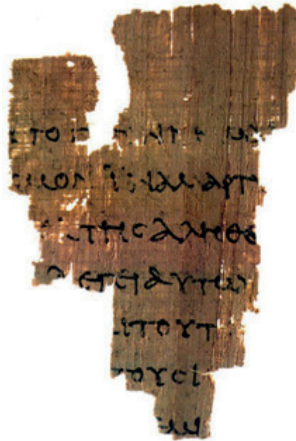 ΤΟ
ϹΜΟΝΙΝΑΜΑΡΤΥ
ΤΗϹΑΛΗΘΕ
ΛΕΓΕΙΑΥΤΩ
ΑΙΤΟΥΤ
ΤΟΥϹΙ
ΜΙ